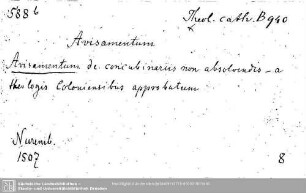 588 b
Theol. cath. B 940
Avisamentum
Avisamentum de concubinariis non absolvendis - a
theologis Coloniensibus approbatum
Nuremb.
1507
8
Sächsische Landesbibliothek -
Staats- und Universitätsbibliothek Dresden